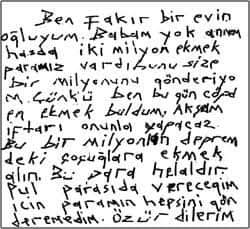 Ben Fakir bir evin
oğluyum. Babam yok annem
hasda iki milyon ekmek
paramız vardı bunu size
bir milyonunu gönderiyo
m. Çünkü ben bu gün çöpd
en Ekmek buldum, Akşam
iftarı onunla yapacaz.
Bu bir milyonlan deprem
deki çoçuğlara ekmek
alın. Bu para helaldir.
Pul parasıda vereceğim
için paramın hepsini gön
deremedim. Özür dilerim